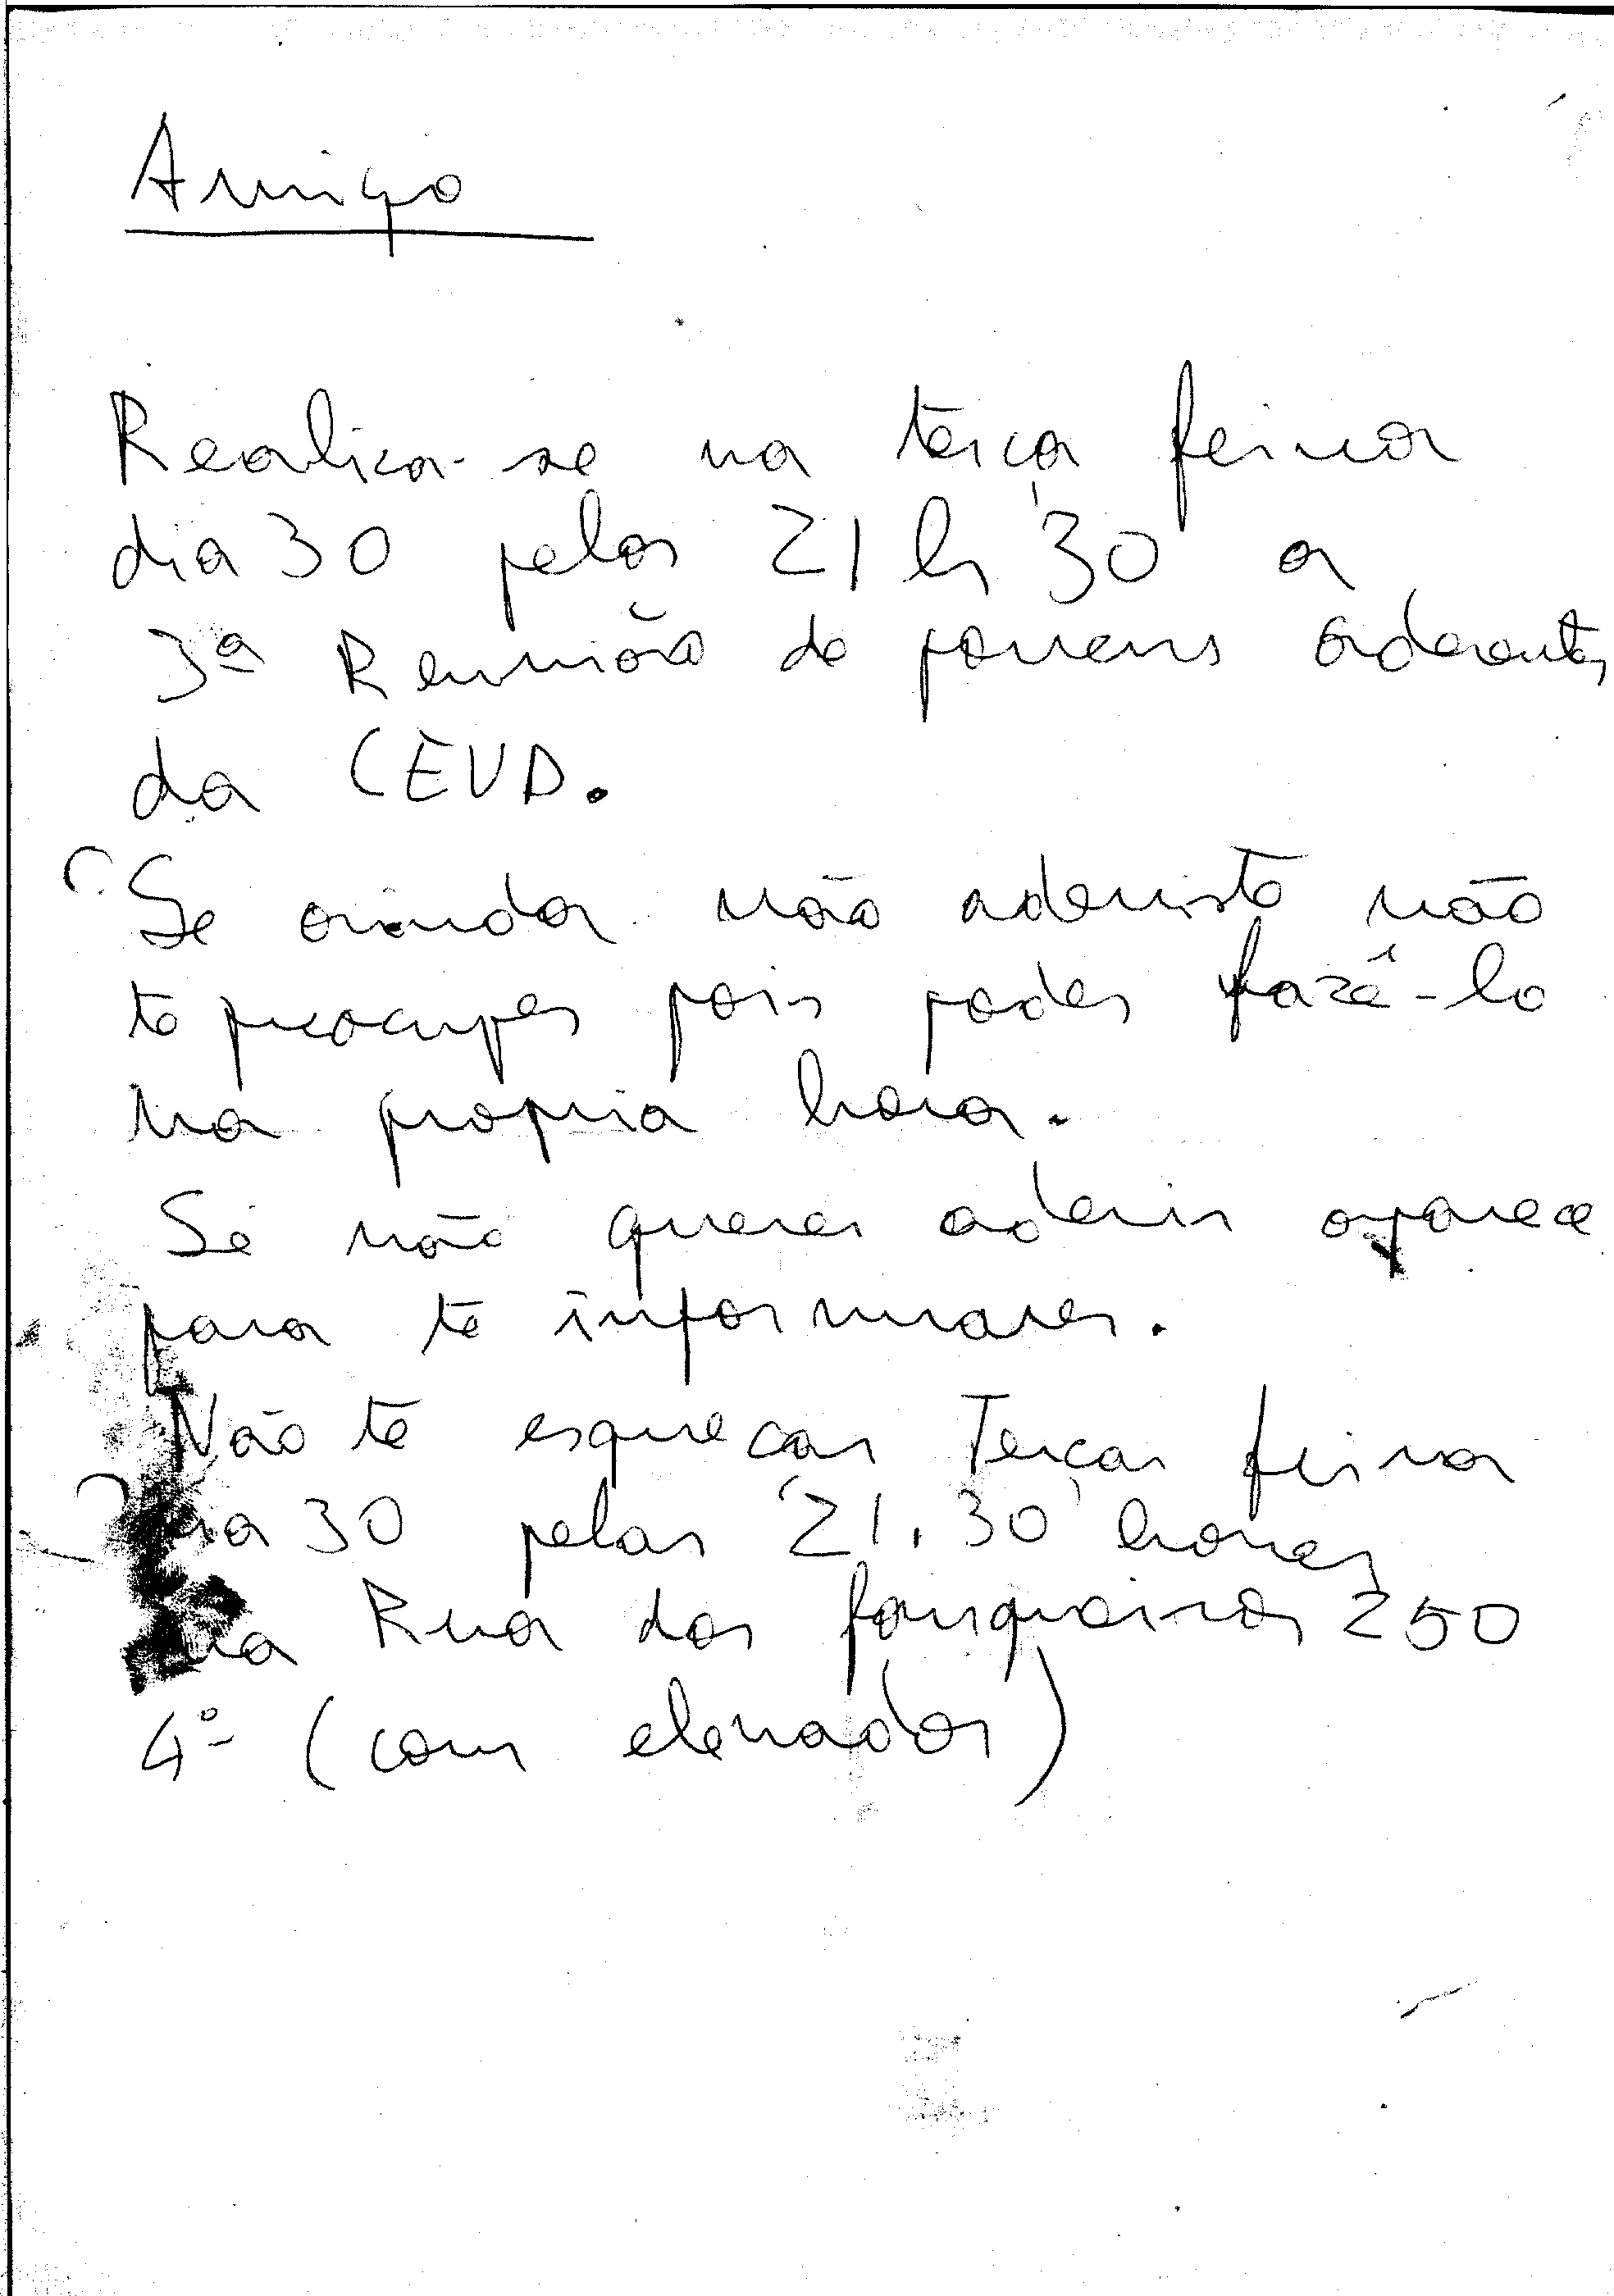 Amigo
Realiza-se na terça feira
dia 30 pelas 21 h 30 a
3ª Reunião de jovens aderentes
da CEUD.
Se ainda não aderiste não
te preocupes pois podes fazê-lo
na propria hora.
Se não queres aderir aparece
para te informares.
Não te esqueças Terça feira
dia 30 pelas 21.30 horas
na Rua dos fanqueiros 250
4º (com elevador)